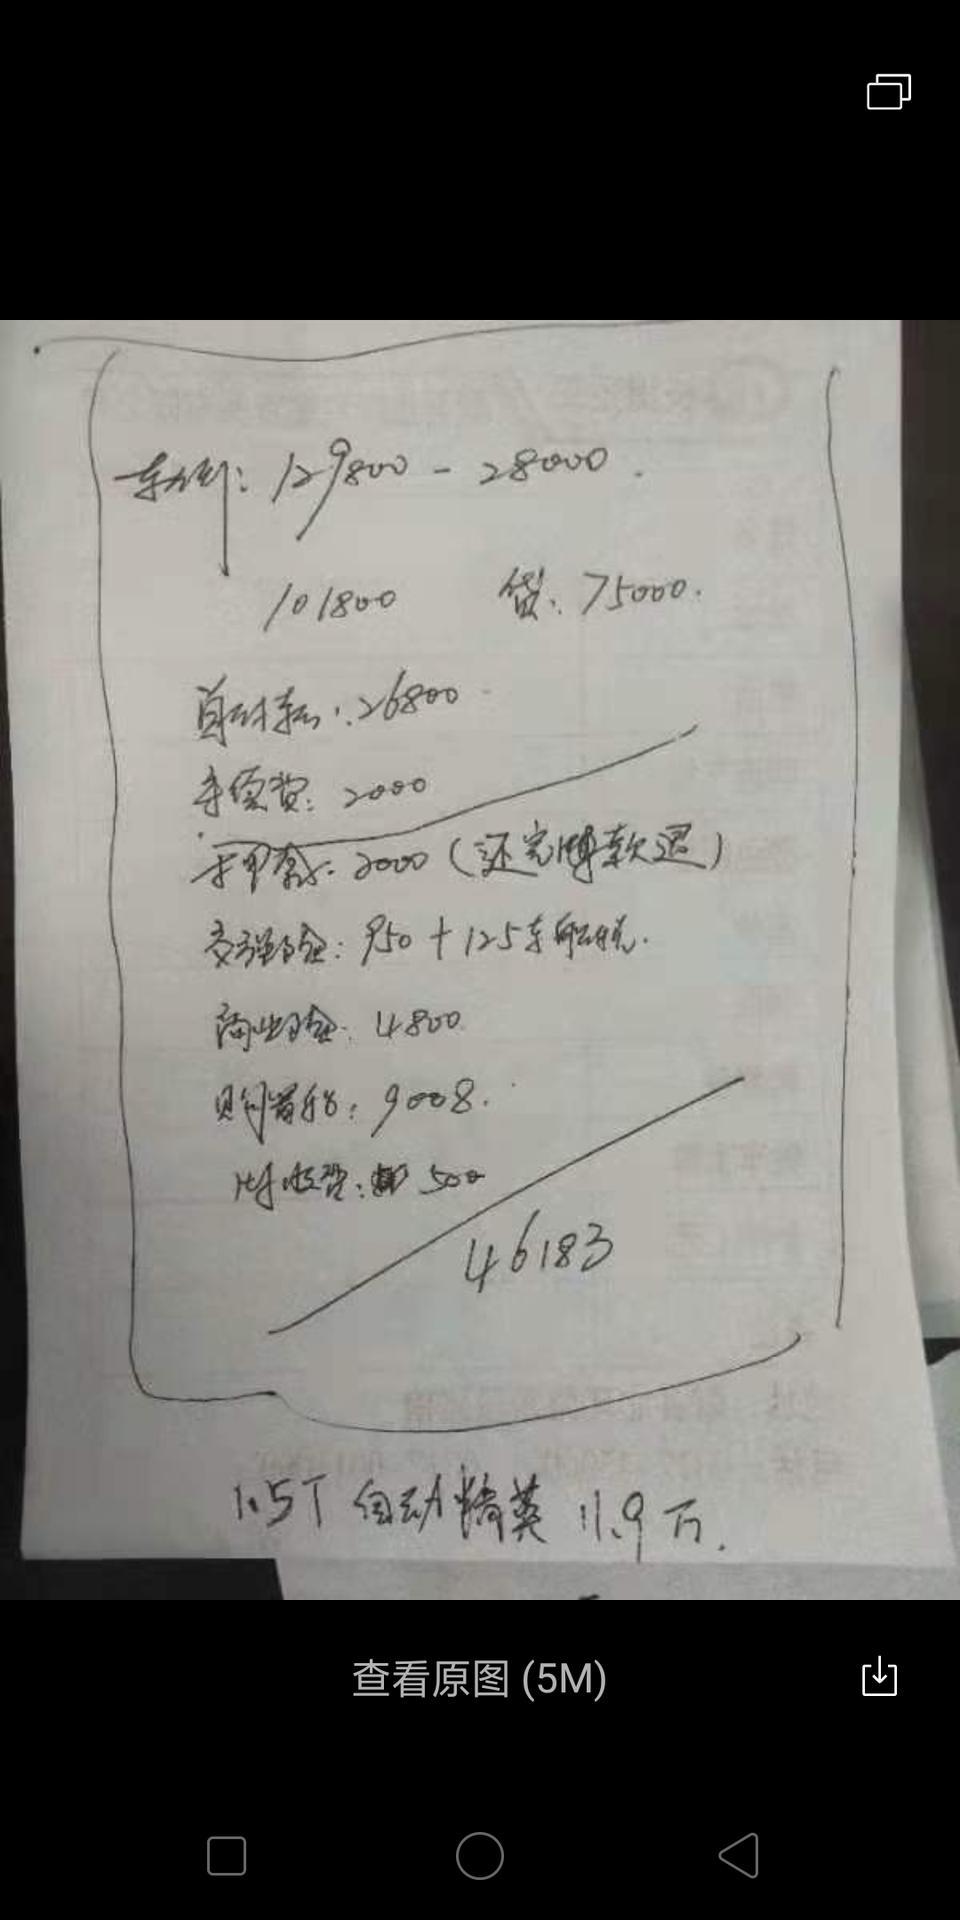 车价: 129800 - 28000.
101800 贷: 75000.
首付款: 26800
手续费: 2000
押金: 2000 (还完贷款退)
交强险: 950 + 125车船税.
商业险: 4800
购置税: 9008.
费: 500
46183
1.5T 自动精英 11.9万.
查看原图 (5M)